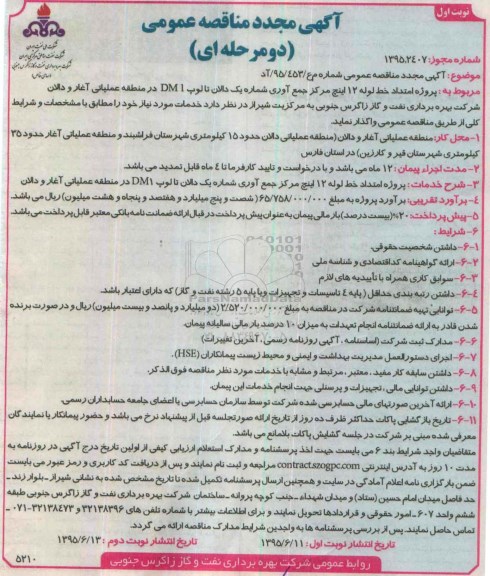 نوبت اول
آگهی مجدد مناقصه عمومی
(دومرحله ای)
شماره مجوز: ۱۳۹۵.۲۴۰۷
موضوع: آگهی مجدد مناقصه عمومی شماره مع/۹۵/۴۵۳/آد
مربوط به: پروژه امتداد خط لوله ۱۲ اینچ مرکز جمع آوری شماره یک دالان تا لوپ DM 1 در منطقه عملیاتی آغار و دالان
شرکت بهره برداری نفت و گاز زاگرس جنوبی به مرکزیت شیراز در نظر دارد خدمات مورد نیاز خود را مطابق با مشخصات و شرایط
کلی از طریق مناقصه عمومی واگذار نماید.
۱-محل کار: منطقه عملیاتی آغار و دالان (منطقه عملیاتی دالان حدود ۱۵ کیلومتری شهرستان فراشبند و منطقه عملیاتی آغار حدود ۳۵
کیلومتری شهرستان قیر و کارزین) در استان فارس
۲-مدت اجراء پیمان: ۱۲ ماه می باشد و با درخواست و تایید کارفرما تا ۴ ماه قابل تمدید می باشد.
۳- شرح خدمات: پروژه امتداد خط لوله ۱۲ اینچ مرکز جمع آوری شماره یک دالان تا لوپ DM1 در منطقه عملیاتی آغار و دالان
۴-برآورد تقریبی: برآورد پروژه به مبلغ ۶۵/۷۵۸/۰۰۰/۰۰۰ (شصت و پنج میلیارد و هفتصد و پنجاه و هشت میلیون) ریال می باشد.
۵-پیش پرداخت: ۲۰%(بیست درصد) بار مالی پیمان به عنوان پیش پرداخت در قبال ارائه ضمانت نامه بانکی معتبر قابل پرداخت می باشد.
۶- شرایط:
۶-۱-داشتن شخصیت حقوقی.
۶-۲- ارائه گواهینامه کداقتصادی و شناسه ملی
۶-۳- سوابق کاری همراه با تأییدیه های لازم
۶-۴- داشتن رتبه بندی حداقل (پایه ۴ تاسیسات و تجهیزات و یا پایه ۵ رشته نفت و گاز) که دارای اعتبار باشد.
۶-۵- توانایی تهیه ضمانتنامه شرکت در مناقصه به مبلغ ۲/۵۲۰/۰۰۰/۰۰۰ (دو میلیارد و پانصد و بیست میلیون) ریال و در صورت برنده
شدن قادر به ارائه ضمانتنامه انجام تعهدات به میزان ۱۰ درصد بار مالی سالیانه پیمان.
۶-۶- مدارک ثبت شرکت (اساسنامه . آگهی روزنامه رسمی. آخرین تغییرات)
۶-۷- اجرای دستورالعمل مدیریت بهداشت و ایمنی و محیط زیست پیمانکاران (HSE).
۶-۸- داشتن سابقه کار مفید، معتبر، مرتبط و مشابه با خدمات مورد مناقصه فوق الذکر.
۶-۹- داشتن توانایی مالی، تجهیزات و پرسنلی جهت انجام خدمات این پیمان.
۶-۱۰- ارائه آخرین صورتهای مالی حسابرسی شده شرکت توسط سازمان حسابرسی یا اعضای جامعه حسابداران رسمی.
۶-۱۱- تاریخ بازگشایی پاکات حداکثر ظرف ده روز از تاریخ ارائه صورتجلسه قبل از پیشنهاد نرخ می باشد و حضور پیمانکار یا نمایندگان
معرفی شده مبنی بر شرکت در جلسه گشایش پاکات بلامانع می باشد.
متقاضیان واجد شرایط بند ۶ می بایست جهت اخذ پرسشنامه و مدارک استعلام ارزیابی کیفی از اولین تاریخ درج آگهی در روزنامه به
مدت ۱۰ روز به آدرس اینترنتی contract.szogpc.com مراجعه و ثبت نام نمایند و پس از دریافت کد کاربری و رمز عبور می بایست
ضمن بارگزاری نامه اعلام آمادگی در سایت و همچنین ارسال پرسشنامه تکمیل شده تا تاریخ مشخص شده به نشانی شیراز- بلوار زند-
حد فاصل میدان امام حسین (ستاد) و میدان شهداء- جنب کوچه پروانه- ساختمان شرکت بهره برداری نفت و گاز زاگرس جنوبی طبقه
ششم واحد ۶۰۷- امور حقوقی و قراردادها تحویل نمایند و برای اطلاعات بیشتر با شماره تلفن های ۳۲۱۳۸۳۹۶ و ۳۲۱۳۸۴۷۳-۰۷۱
تماس حاصل نمایند. پس از بررسی پرسشنامه ها به واجدین شرایط مدارک مناقصه ارائه می گردد.
تاریخ انتشار نوبت اول: ۱۳۹۵/۶/۱۱ تاریخ انتشار نوبت دوم: ۱۳۹۵/۶/۱۳
روابط عمومی شرکت بهره برداری نفت و گاز زاگرس جنوبی
۵۲۱۰